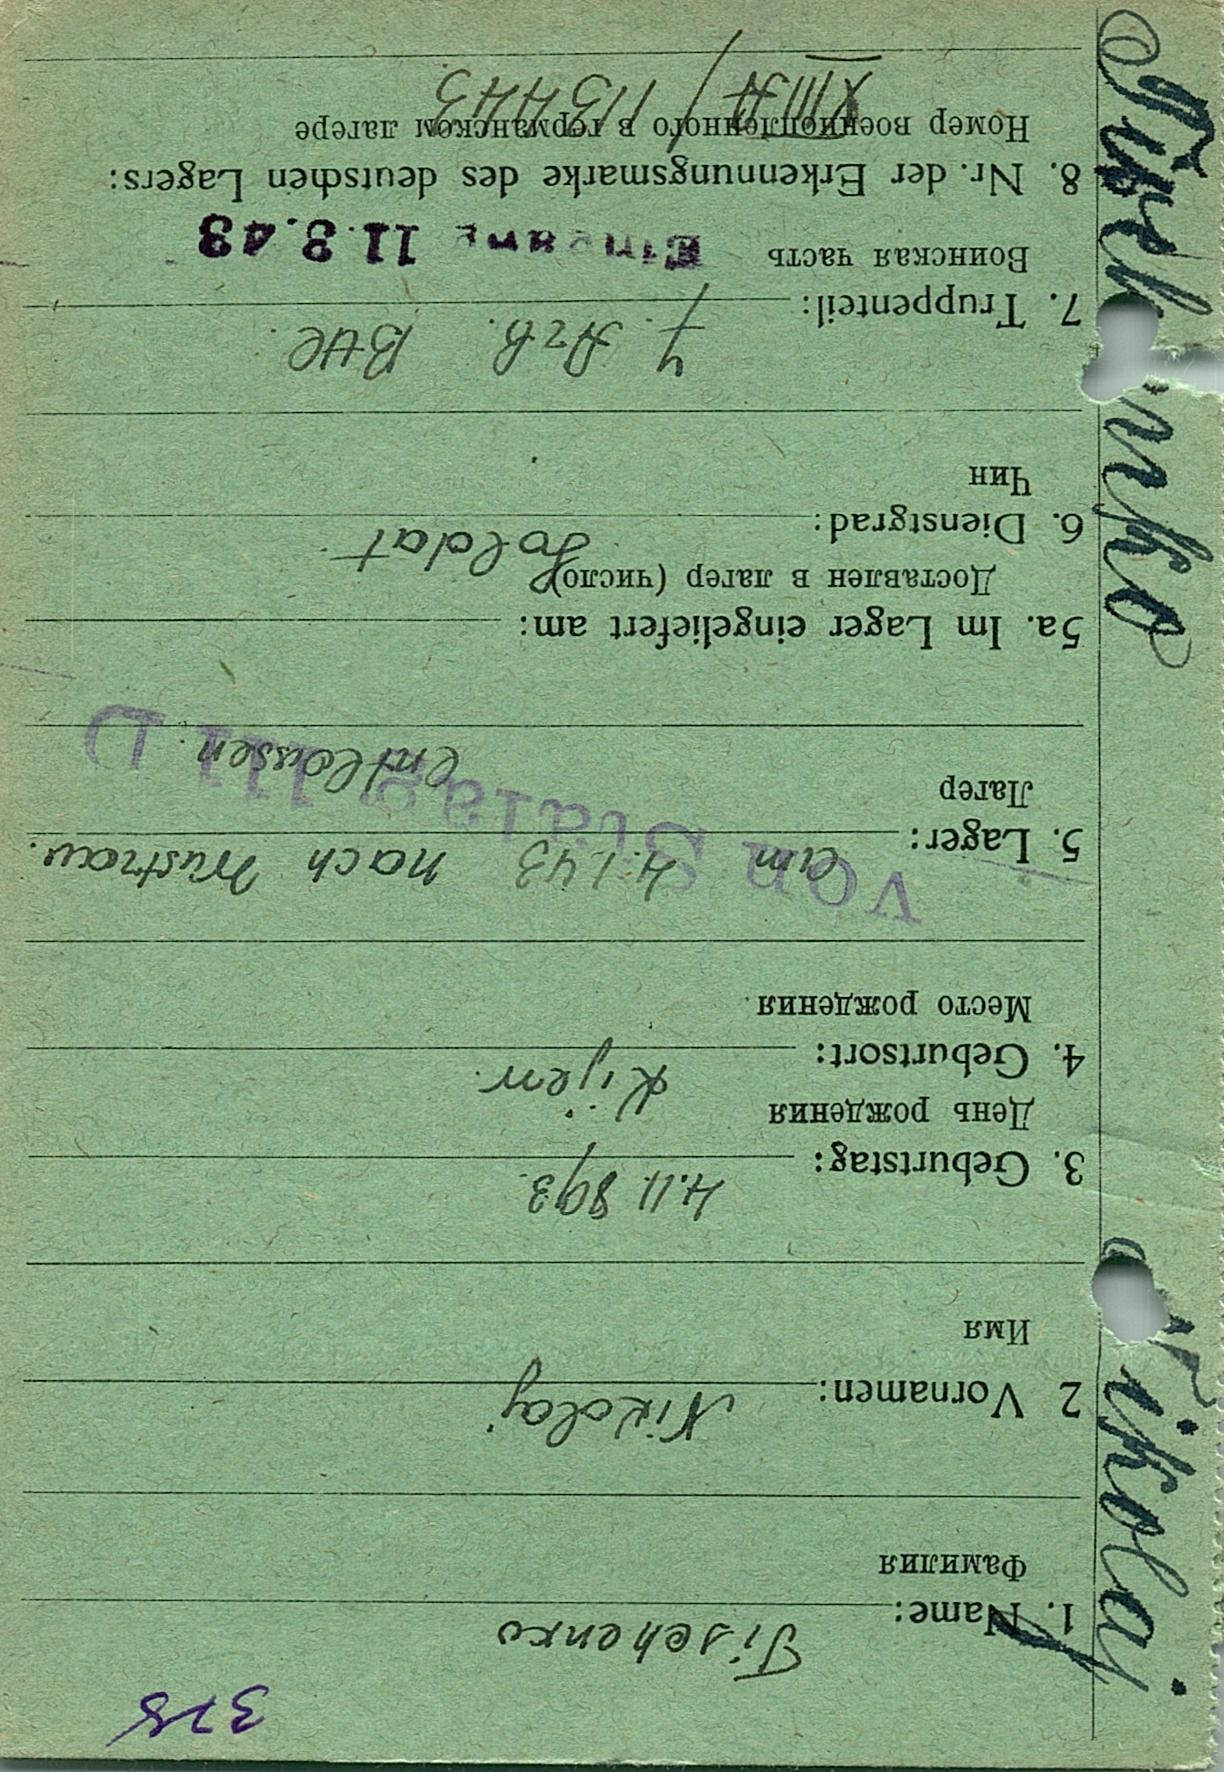 378
1. Name: Tischenko
Фамилия
2 Vornamen: Nikolaj
Имя
3. Geburtstag: 4.11.893.
День рождения
4. Geburtsort: Kijew.
Место рождения
von Stalag III D
am 4.1.43 nach
5. Lager:
Лагер entlassen.
5a. Im Lager eingeliefert am:
Доставлен в лагер (число)
6. Dienstgrad: Soldat.
Чин
7. Arb. Btl.
7. Truppenteil:
Воинская часть Eingang 11.3.43
8. Nr. der Erkennungsmarke des deutschen Lagers:
Номер военнопленного в германском лагере
XIII A / 113443
Nikolaj